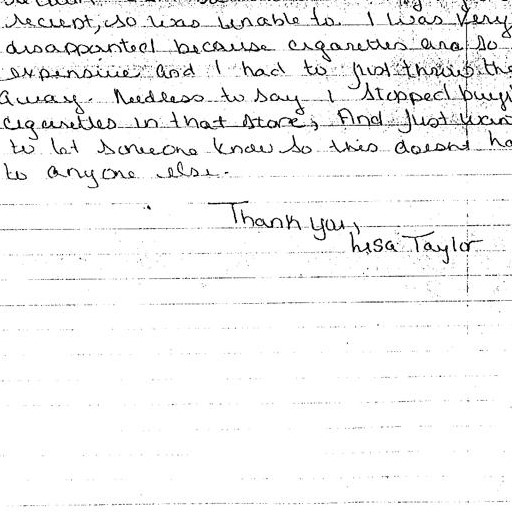 reciept, so was unable to. I was very
disappointed because cigarettes are so
expensive and I had to just throw the
away. Needless to say I stopped buyi
cigarettes in that store, And just wan
to let someone know so this doesnt ha
to anyone else.
Thank you,
Lisa Taylor